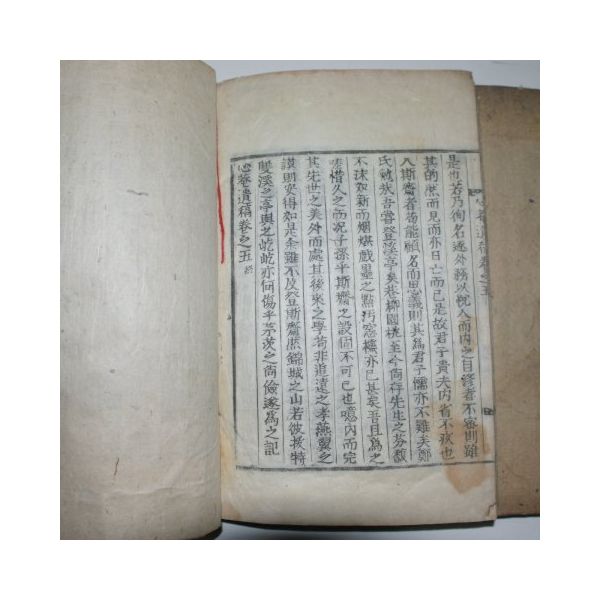 是也若乃徇名逐外務以悅人而內之自修者不審則雖
其的然而見而亦日亡而已是故君子貴夫內省不疚也
入斯齋者苟能顧名而思義則其爲君子儒亦不難矣鄭
氏勉哉吾嘗登溪亭矣巷柳園桃至今尚存先生之芬馥
不沫如新而烟煤戱墨之點汚窓欞亦已甚矣吾且爲之
嗟惜久之而况子孫乎斯齋之設固不可已也噫內而完
其先世之美外而處其後來之學苟非追遠之孝燕翼之
謨則安得如是余雖不及登斯齋然錦城之山若彼拔特
雙溪之亭與之屹屹亦何傷乎茅茨之尚儉遂爲之記
心菴遺稿卷之五 終
心菴遺稿卷之五